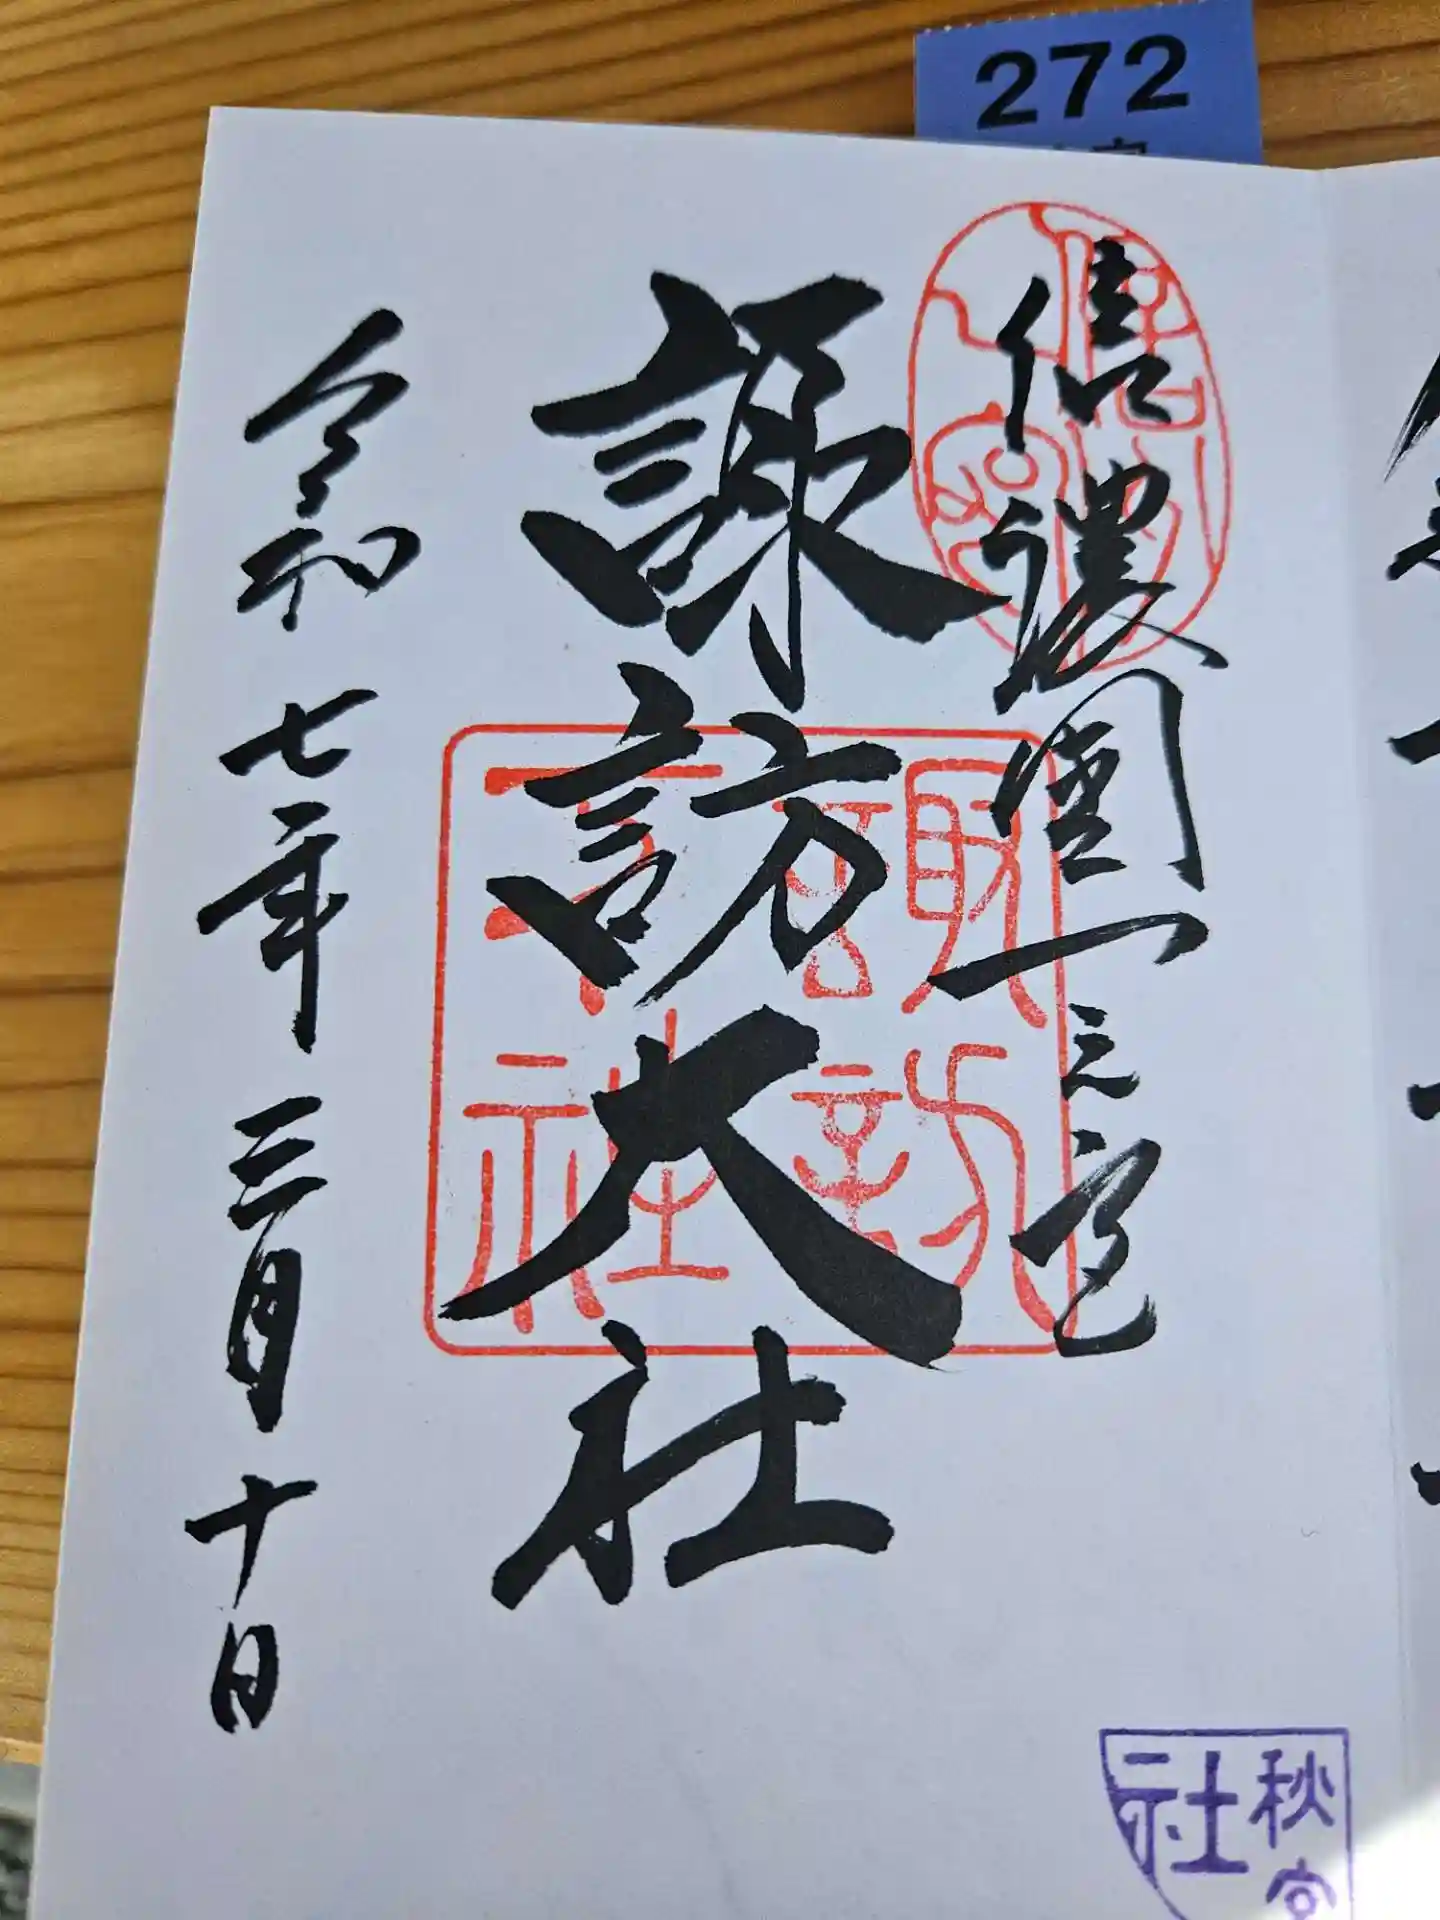 272
信濃國一之宮
諏訪大社
令和七年三月十日
諏訪
下社
秋宮
社